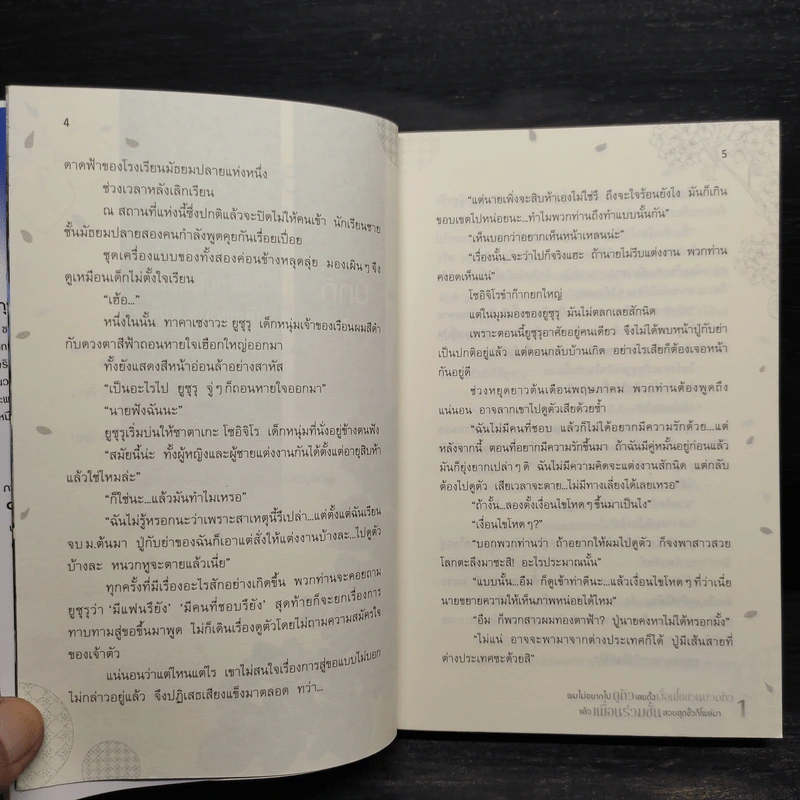 4
ดาดฟ้าของโรงเรียนมัธยมปลายแห่งหนึ่ง
ช่วงเวลาหลังเลิกเรียน
ณ สถานที่แห่งนี้ซึ่งปกติแล้วจะปิดไม่ให้คนเข้า นักเรียนชาย
ชั้นมัธยมปลายสองคนกำลังพูดคุยกันเรื่อยเปื่อย
ชุดเครื่องแบบของทั้งสองค่อนข้างหลุดลุ่ย มองเผินๆ จึง
ดูเหมือนเด็กไม่ตั้งใจเรียน
“เฮ้อ...”
หนึ่งในนั้น ทาคาเซงาวะ ยูซุรุ เด็กหนุ่มเจ้าของเรือนผมสีดำ
กับดวงตาสีฟ้าถอนหายใจเฮือกใหญ่ออกมา
ทั้งยังแสดงสีหน้าอ่อนล้าอย่างสาหัส
“เป็นอะไรไป ยูซุรุ จู่ๆ ก็ถอนหายใจออกมา”
“นายฟังฉันนะ”
ยูซุรุเริ่มบ่นให้ซาตาเกะ โซอิจิโร เด็กหนุ่มที่นั่งอยู่ข้างตนฟัง
“สมัยนี้น่ะ ทั้งผู้หญิงและผู้ชายแต่งงานกันได้ตั้งแต่อายุสิบห้า
แล้วใช่ไหมล่ะ”
“ก็ใช่นะ...แล้วมันทำไมเหรอ”
“ฉันไม่รู้หรอกนะว่าเพราะสาเหตุนี้รึเปล่า...แต่ตั้งแต่ฉันเรียน
จบ ม.ต้นมา ปู่กับย่าของฉันก็เอาแต่สั่งให้แต่งงานบ้างละ...ไปดูตัว
บ้างละ หนวกหูจะตายแล้วเนี่ย”
ทุกครั้งที่มีเรื่องอะไรสักอย่างเกิดขึ้น พวกท่านจะคอยถาม
ยูซุรุว่า ‘มีแฟนรึยัง’ ‘มีคนที่ชอบรึยัง’ สุดท้ายก็จะยกเรื่องการ
ทาบทามสู่ขอขึ้นมาพูด ไม่ก็เดินเรื่องดูตัวโดยไม่ถามความสมัครใจ
ของเจ้าตัว
แน่นอนว่าแต่ไหนแต่ไร เขาไม่สนใจเรื่องการสู่ขอแบบไม่บอก
ไม่กล่าวอยู่แล้ว จึงปฏิเสธเสียงแข็งมาตลอด ทว่า...
5
“แต่นายเพิ่งจะสิบห้าเองไม่ใช่รึ ถึงจะใจร้อนยังไง มันก็เกิน
ขอบเขตไปหน่อยนะ...ทำไมพวกท่านถึงทำแบบนั้นกัน”
“เห็นบอกว่าอยากเห็นหน้าเหลนน่ะ”
“เรื่องนั้น...จะว่าไปก็จริงแฮะ ถ้านายไม่รีบแต่งงาน พวกท่าน
คงอดเห็นแน่”
โซอิจิโรขำก๊ากยกใหญ่
แต่ในมุมมองของยูซุรุ มันไม่ตลกเลยสักนิด
เพราะตอนนี้ยูซุรุอาศัยอยู่คนเดียว จึงไม่ได้พบหน้าปู่กับย่า
เป็นปกติอยู่แล้ว แต่ตอนกลับบ้านเกิด อย่างไรเสียก็ต้องเจอหน้า
กันอยู่ดี
ช่วงหยุดยาวต้นเดือนพฤษภาคม พวกท่านต้องพูดถึง
แน่นอน อาจลากเขาไปดูตัวเสียด้วยซ้ำ
“ฉันไม่มีคนที่ชอบ แล้วก็ไม่ได้อยากมีความรักด้วย...แต่
หลังจากนี้ ตอนที่อยากมีความรักขึ้นมา ถ้าฉันมีคู่หมั้นอยู่ก่อนแล้ว
มันก็ยุ่งยากเปล่าๆ ดิ ฉันไม่มีความคิดจะแต่งงานสักนิด แต่กลับ
ต้องไปดูตัว เสียเวลาจะตาย...ไม่มีทางเลี่ยงได้เลยเหรอ”
“ถ้างั้น...ลองตั้งเงื่อนไขโหดๆ ขึ้นมาเป็นไง”
“เงื่อนไขโหดๆ?”
“บอกพวกท่านว่า ถ้าอยากให้ผมไปดูตัว ก็จงพาสาวสวย
โลกตะลึงมาซะสิ! อะไรประมาณนั้น”
“แบบนั้น...อืม ก็ดูเข้าท่าดีนะ...แล้วเงื่อนไขโหดๆ ที่ว่าเนี่ย
นายขยายความให้เห็นภาพหน่อยได้ไหม”
“อืม ก็พวกสาวผมทองตาฟ้า? ปู่นายคงหาไม่ได้หรอกมั้ง”
“ไม่แน่ อาจจะพามาจากต่างประเทศก็ได้ ปู่มีเส้นสายที่
ต่างประเทศซะด้วยสิ”
ผมไม่อยากไปดูตัวเลยตั้งเงื่อนไข
แล้วเพื่อนร่วมชั้นสวยสุดขั้วก็โผล่มา 1